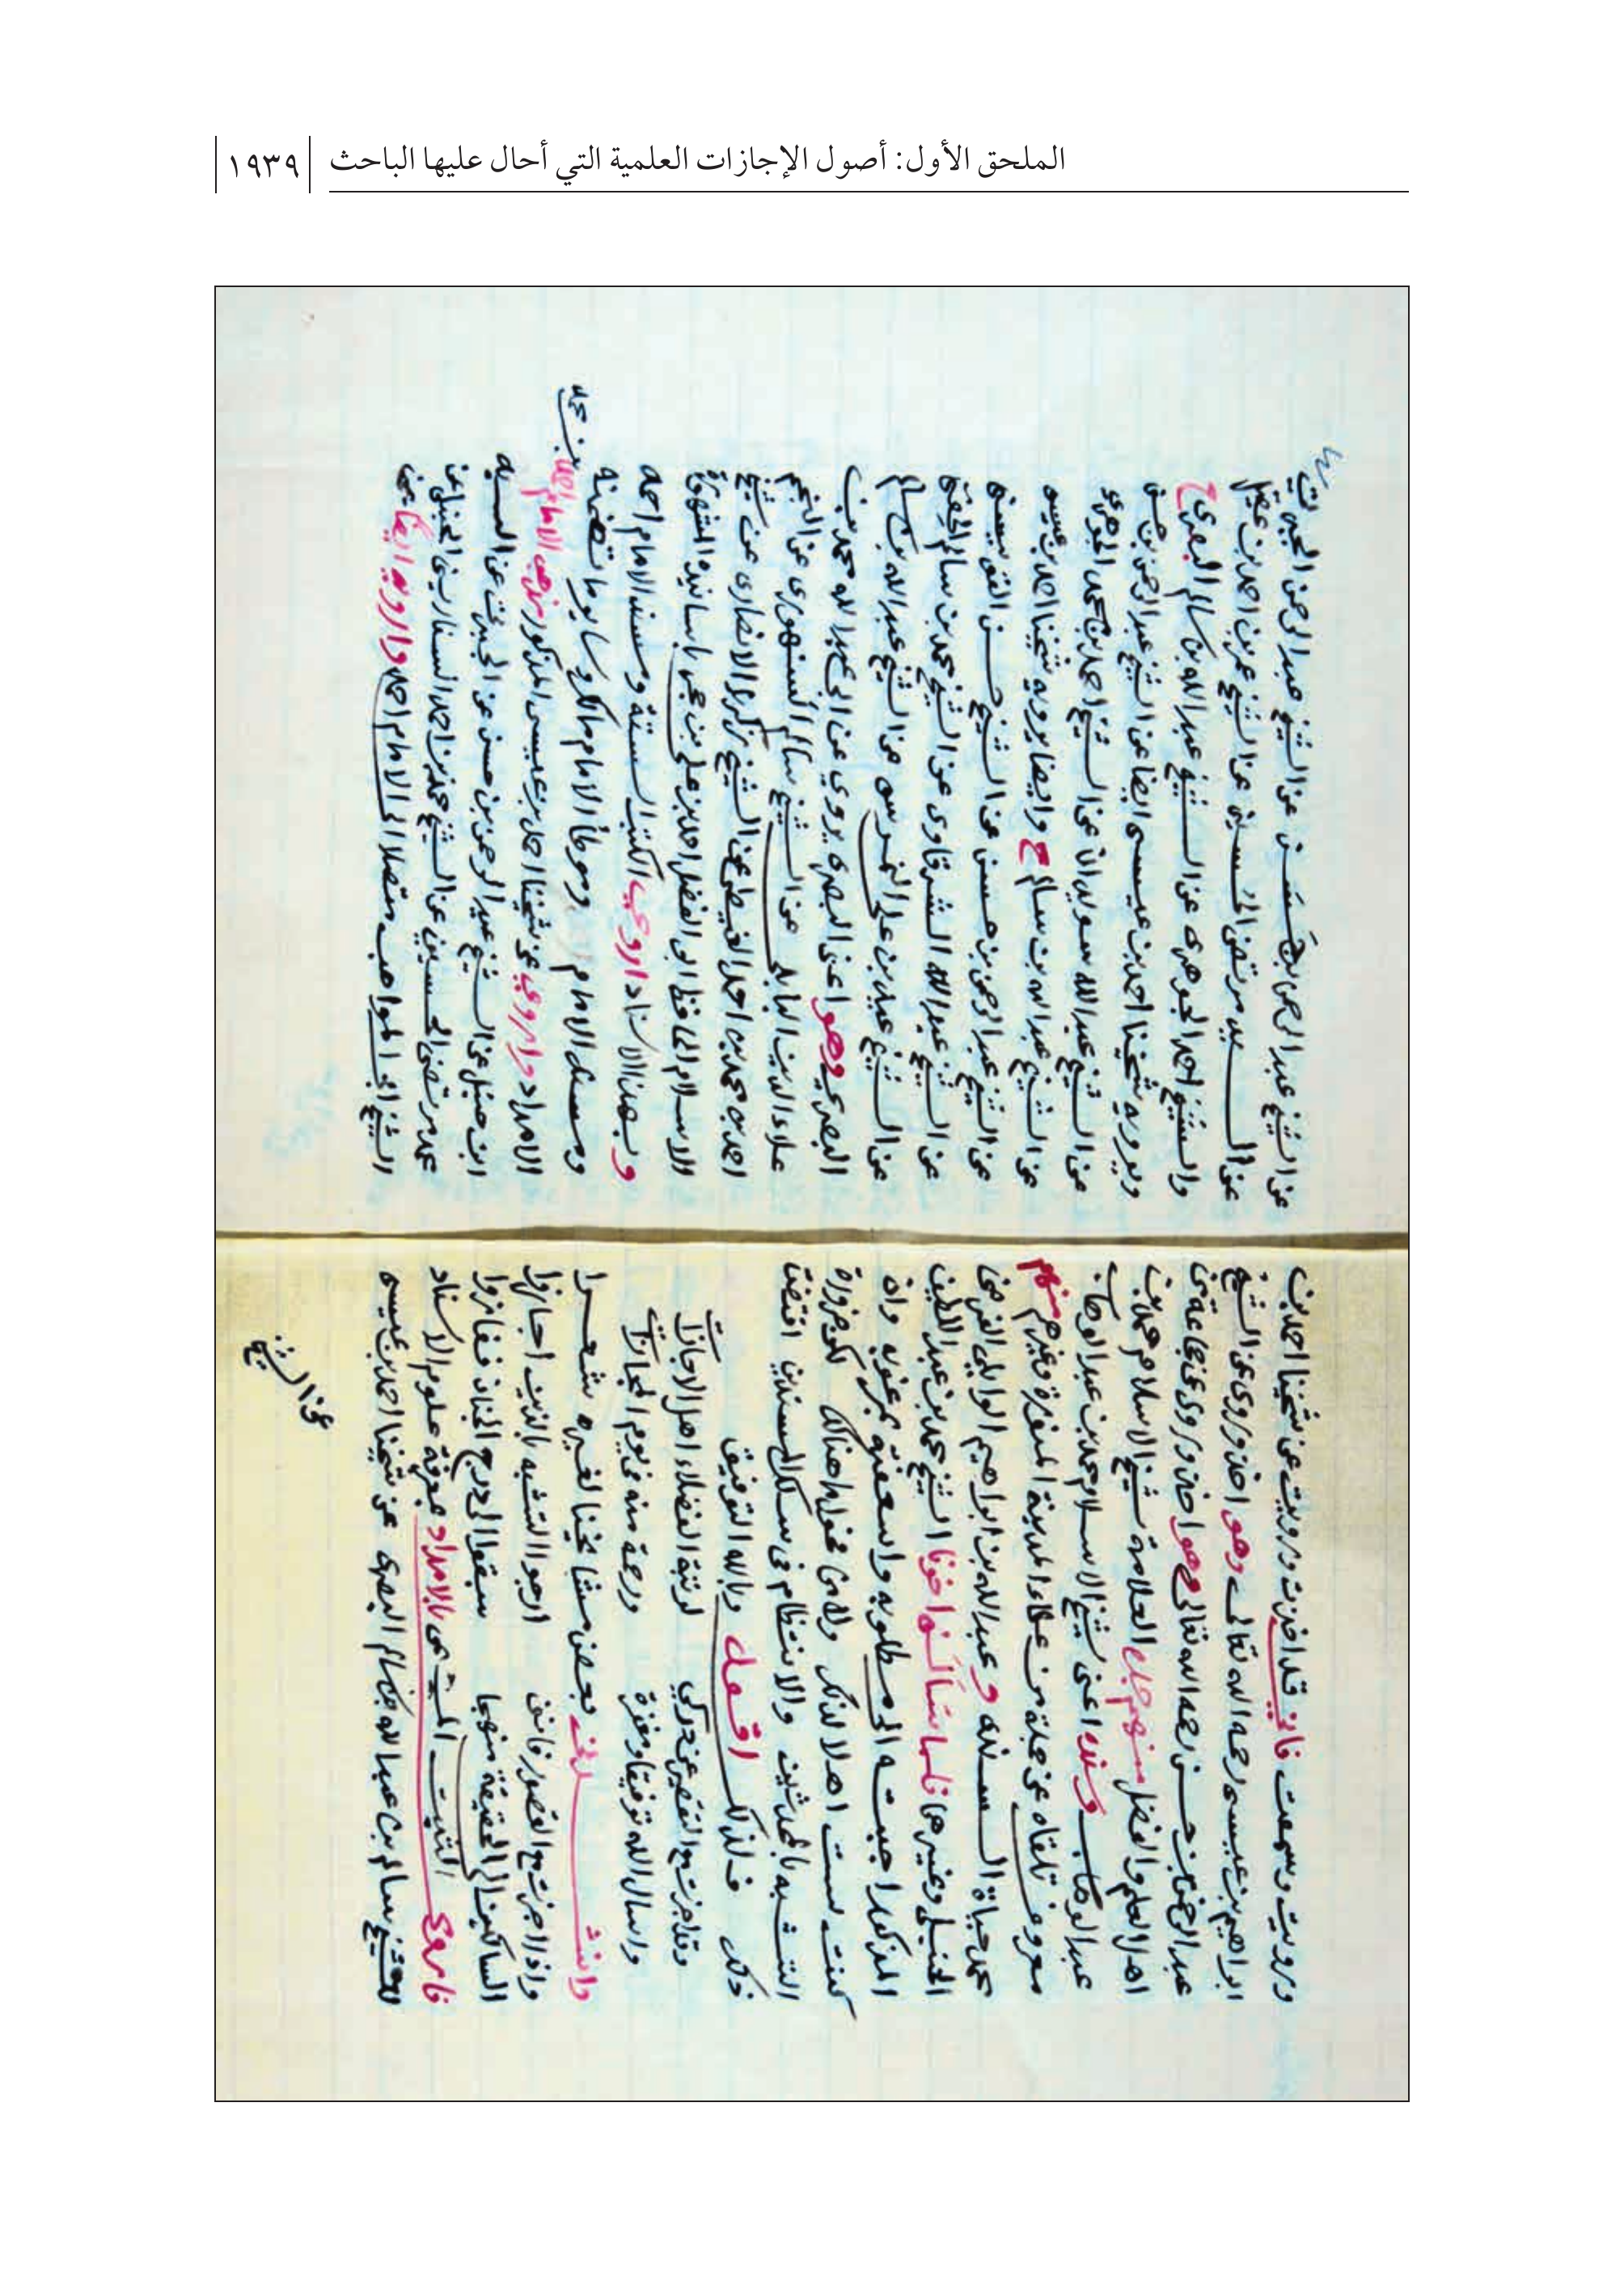 الملحق الأول: أصول الإجازات العلمية التي أحال عليها الباحث ١٩٣٩
ورويت وسمعت فاني قد اخذت ورويت عن شيخنا احمد بن
ابراهيم بن عيسى رحمه الله تعالى وهو اخذ وروى عن الشيخ
عبد الرحمن بن حسن رحمه الله تعالى وهو اخذ وروى عن جماعة من
اهل العلم والفضل منهم جده العلامة شيخ الاسلام محمد بن
عبد الوهاب وسنده اعني شيخ الاسلام محمد بن عبد الوهاب
معروف تلقاه عن جملة من علماء المدينة المنورة وغيرهم منهم
محمد حياة السندي وعبد الله بن ابراهيم الوايلي الفرضي
الحنبلي وغيرهما فلما سألنا اخونا الشيخ محمد بن عبد اللطيف
المذكور اجبته الى مطلوبه واسعفته بمرغوبه وان
كنت لست اهلا لذلك ولا من فحول ما هنالك لكن جزاه
التشبه بالمحدثين والانتظام في سلك المسندين اقتضت
ذلك فلذلك اقول وبالله التوفيق
وقد اجزت مع التقصير عن دركي لرتبة الفضلاء اهل الاجازات
واسال الله توفيقا ومغفرة ورحمة منه في يوم المجازات
وانشدني بعض مشايخنا لغيره شعرا
واذا اجزت مع القصور فانني ارجو التشبه بالذين اجازوا
السالكين الى الحقيقة منهجا سبقوا الى درج الجنان ففازوا
فاروي الثبت المسمى بالامداد بمعرفة علوم الاسناد
للشيخ سالم بن عبد الله بن سالم البصري عن شيخنا احمد بن عيسى
عن الشيخ
عن الشيخ عبد الرحمن بن حسن عن الشيخ عبد الرحمن الجبرتي
عن السيد مرتضى الحسيني عن الشيخ عمر بن احمد بن عقيل
والشيخ احمد الجوهري عن الشيخ عبد الله بن سالم البصري ح
ويرويه شيخنا احمد بن عيسى ايضا عن الشيخ عبد الرحمن بن حسن
عن الشيخ عبد الله سويدان عن الشيخ احمد بن محمد الجوهري
عن الشيخ عبد الله بن سالم ح وايضا يرويه شيخنا احمد بن عيسى
عن الشيخ عبد الرحمن بن حسن عن الشيخ حسن القويسني
عن الشيخ عبد الله الشرقاوي عن الشيخ محمد بن سالم الحفني
عن الشيخ عيد بن علي النمرسي عن الشيخ عبد الله بن سالم
البصري وهو اعني البصري يروي عن ابي عبد الله محمد بن
علاء الدين البابلي عن الشيخ سالم السنهوري عن النجم
احمد بن محمد بن احمد الغيطي عن الشيخ زكريا الانصاري عن شيخ
الاسلام الحافظ ابي الفضل احمد بن علي بن حجر باسانيده المشهورة
وبهذا الاسناد اروي الكتب الستة ومسند الامام احمد
ومسند الامام وموطأ الامام مالك وسائر ما تضمنه
الامداد واروي عن شيخنا احمد بن عيسى المذكور مذهب الامام احمد بن محمد
ابن حنبل عن الشيخ عبد الرحمن بن حسن عن الجبرتي عن السيد
محمد مرتضى الحسيني عن الشيخ محمد بن احمد السفاريني الحنبلي عن
الشيخ ابي المواهب متصلا الى الامام احمد وارويه ايضا عن